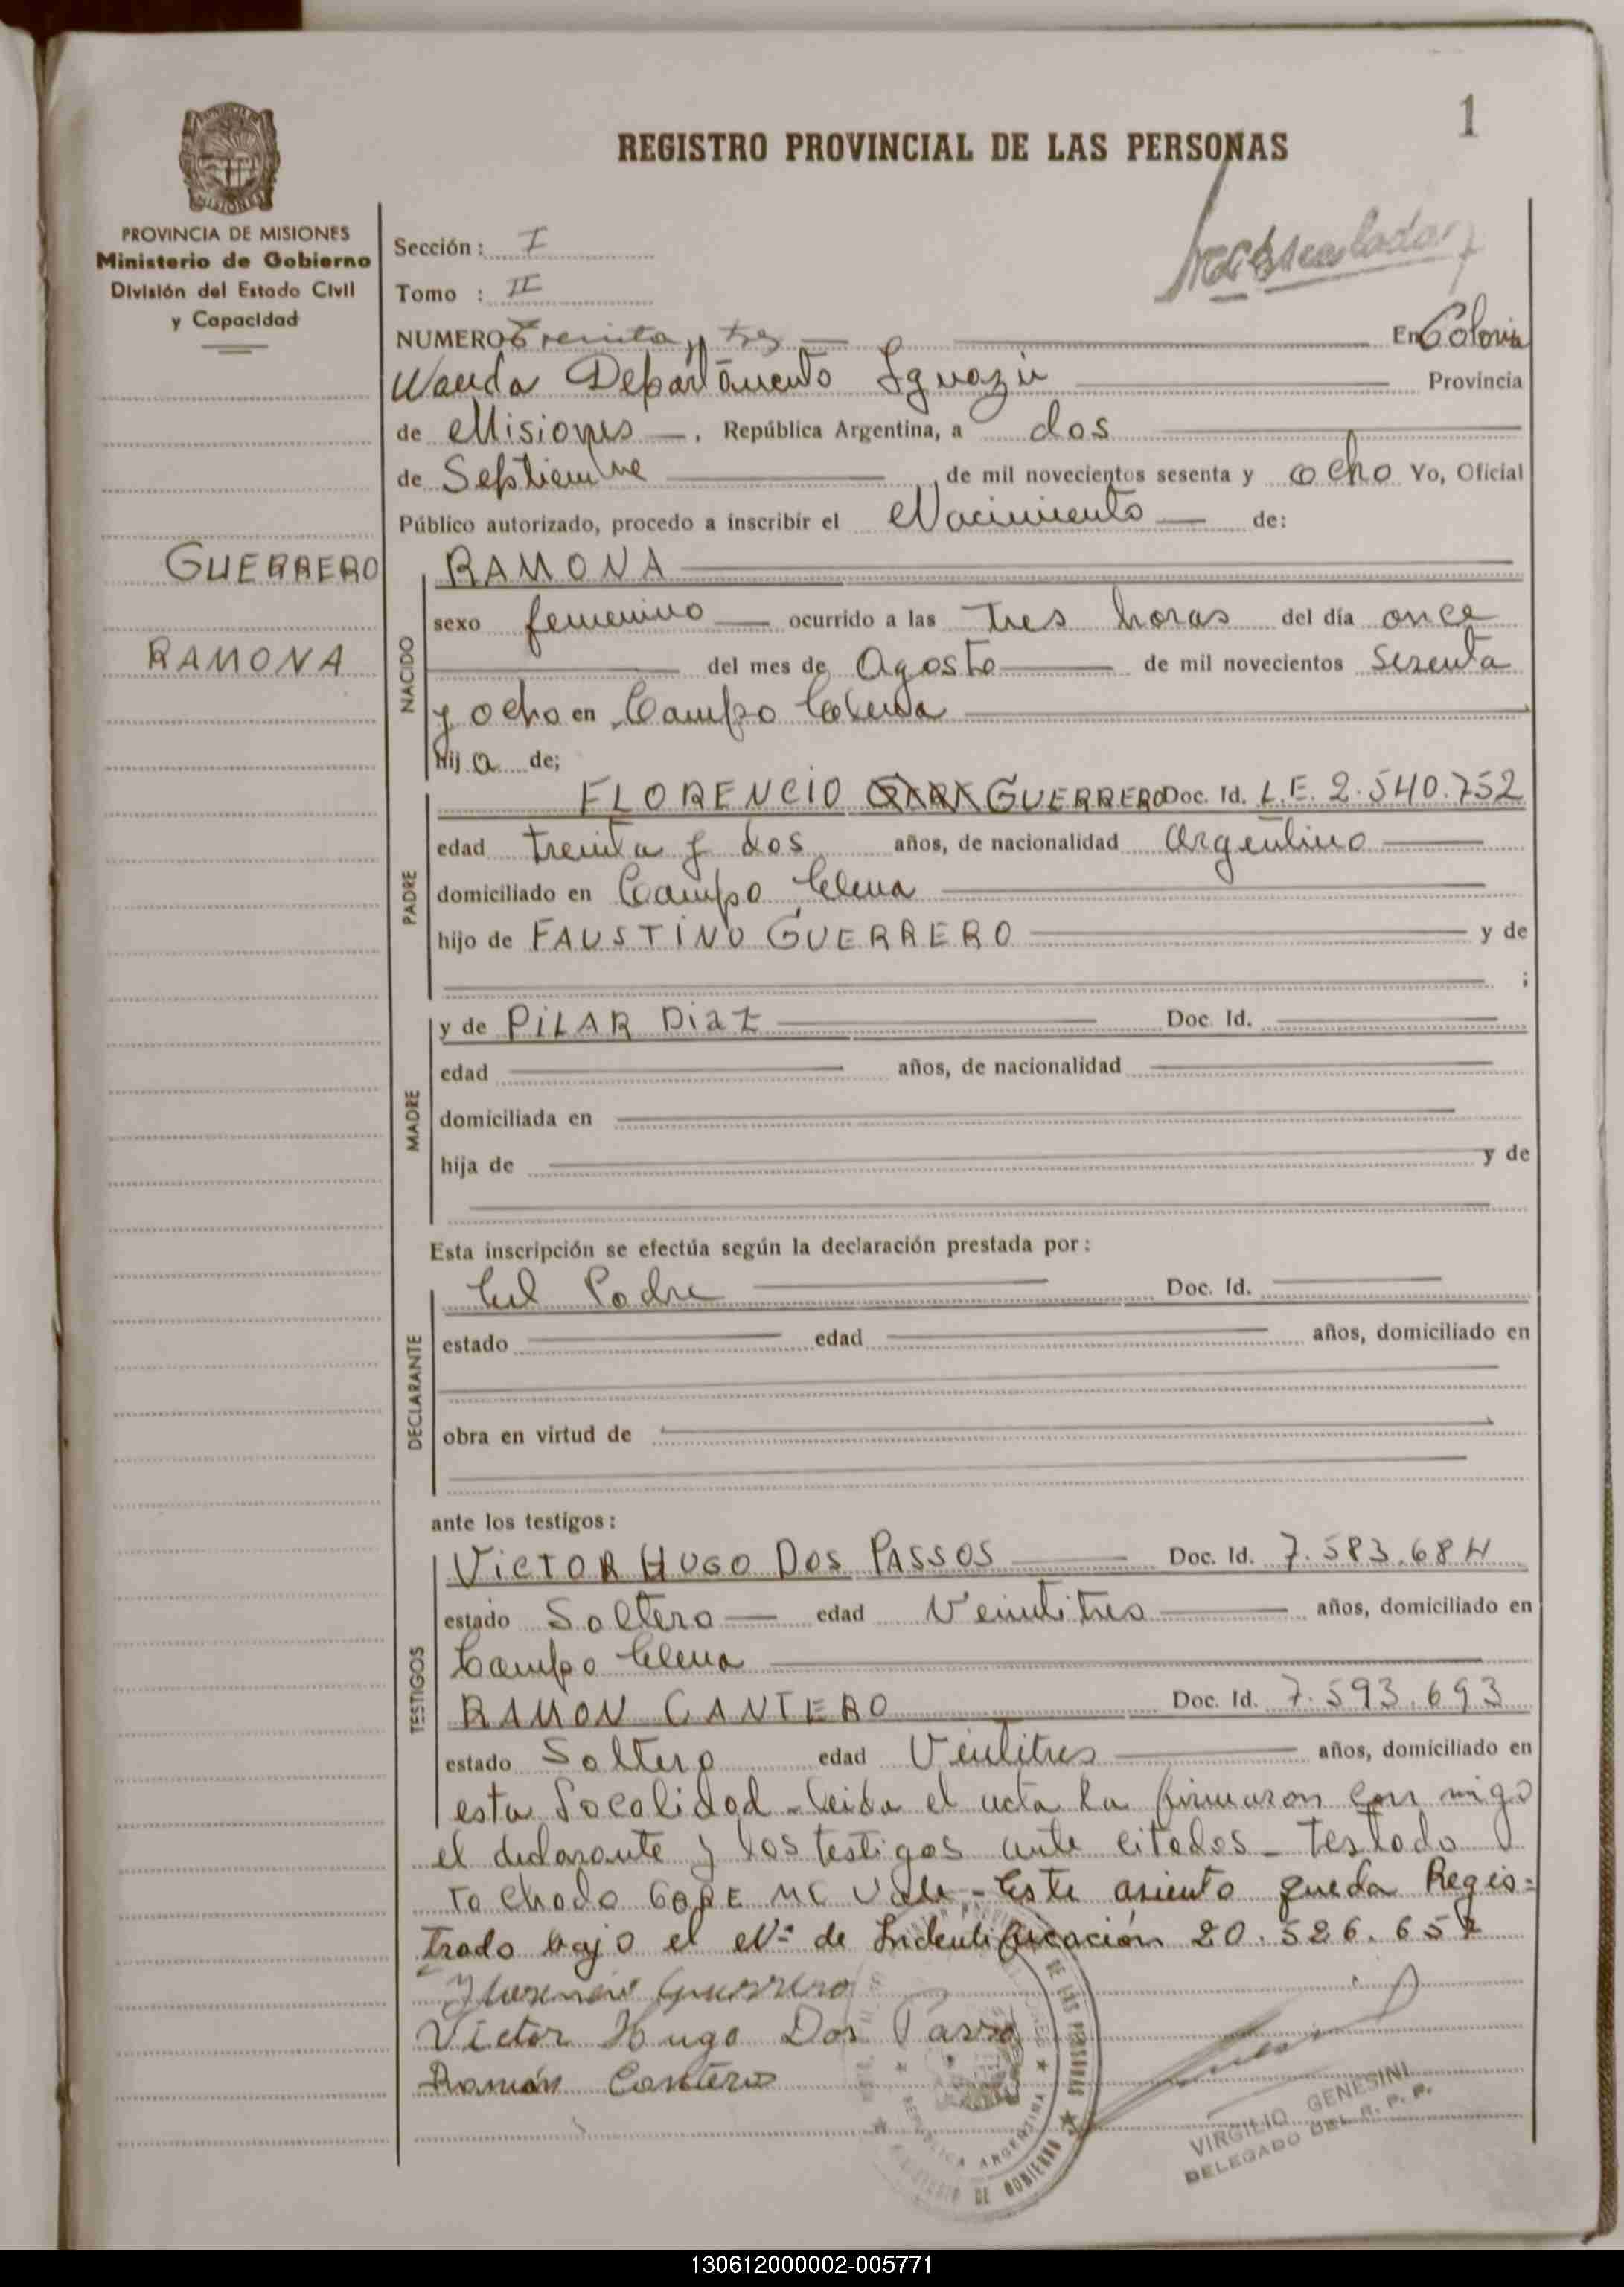 1
REGISTRO PROVINCIAL DE LAS PERSONAS
MISIONES
PROVINCIA DE MISIONES
Ministerio de Gobierno
División del Estado Civil
y Capacidad
Sección : I
Tomo : II
NUMERO Treinta y tres En Colonia
Wanda Departamento Iguazú Provincia
de Misiones , República Argentina, a dos
de Septiembre , de mil novecientos sesenta y ocho Yo, Oficial
Público autorizado, procedo a inscribir el Nacimiento de:
GUERRERO
RAMONA
RAMONA
NACIDO
sexo femenino ocurrido a las tres horas del día once
del mes de Agosto de mil novecientos Sesenta
y ocho en Campo Elena
hij a de;
PADRE
FLORENCIO GUERRERO Doc. Id. L.E. 2.540.752
edad treinta y dos años, de nacionalidad argentino
domiciliado en Campo Elena
hijo de FAUSTINO GUERRERO y de
;
MADRE
y de PILAR DIAZ Doc. Id.
edad años, de nacionalidad
domiciliada en
hija de y de
Esta inscripción se efectúa según la declaración prestada por :
DECLARANTE
El Padre Doc. Id.
estado edad años, domiciliado en
obra en virtud de
ante los testigos :
TESTIGOS
VICTOR HUGO DOS PASSOS Doc. Id. 7.583.684
estado Soltero edad Veintitres años, domiciliado en
Campo Elena
RAMON CANTERO Doc. Id. 7.593.693
estado Soltero edad Veintitres años, domiciliado en
esta Localidad - leida el acta la firmaron con migo
el declarante y los testigos ante citados - testado
Tachado no Vale - Este asiento queda Regis=
trado bajo el Nº de Indentificación 20.526.657
Florencio Guerrero
Victor Hugo Dos Passos
Ramón Cantero
DE LAS PERSONAS
REPUBLICA ARGENTINA
DE GOBIERNO
VIRGILIO GENESINI
DELEGADO DEL R. P. P.
130612000002-005771